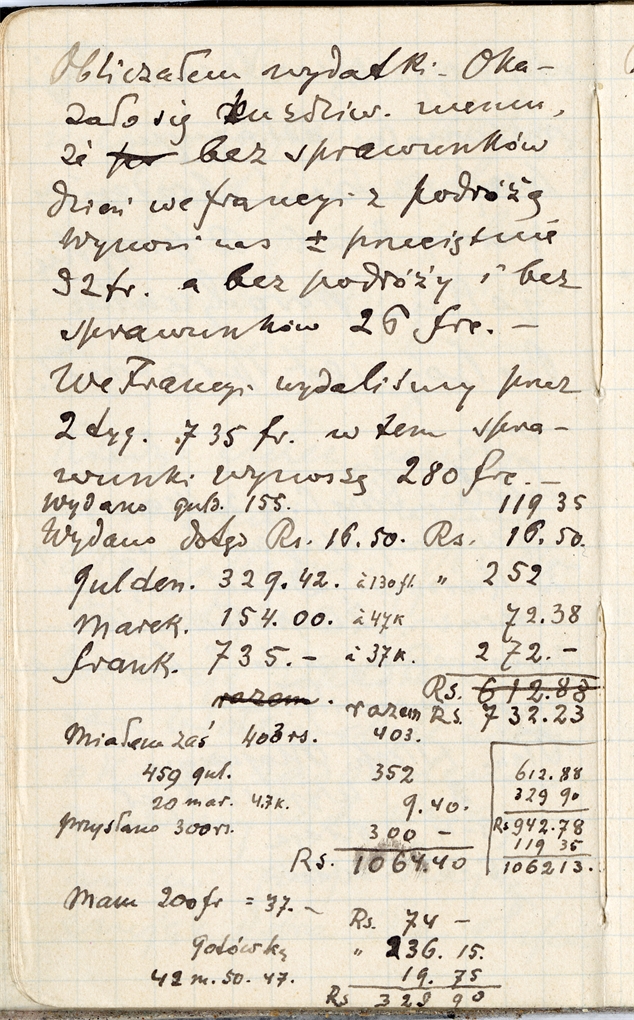 Obliczałem wydatki. Oka-
zało się ku zdziw. memu,
że bez sprawunków
dzień we francyi z podróżą
wynosi nas ± przeciętnie
92 fr. a bez podróży i bez
sprawunków 26 frc. —
We Francyi wydaliśmy przez
2 tyg. 735 fr. w tem spra-
wunki wynoszą 280 frc. —
Wydano guld. 155. 119 35
Wydano dotąd Rs. 16.50. Rs. 16.50.
gulden. 329.42. à 130 fl. " 252
Marek. 154.00. à 47 K 72.38
frank. 735.- à 37 K. 272.-
Rs. 612.88
razem. razem Rs. 732.23
Miałem zaś 403 rs. 403.
459 gul. 352 612.88
20 mar. 47 K. 9.40. 329 90
przysłano 300 rs. 300 — Rs 942.78
119 35
Rs. 1064.40 106213.
Mam 200 fr = 37.- Rs. 74 —
gotówką " 236. 15.
42 m. 50. 47. 19. 75
Rs 329 90